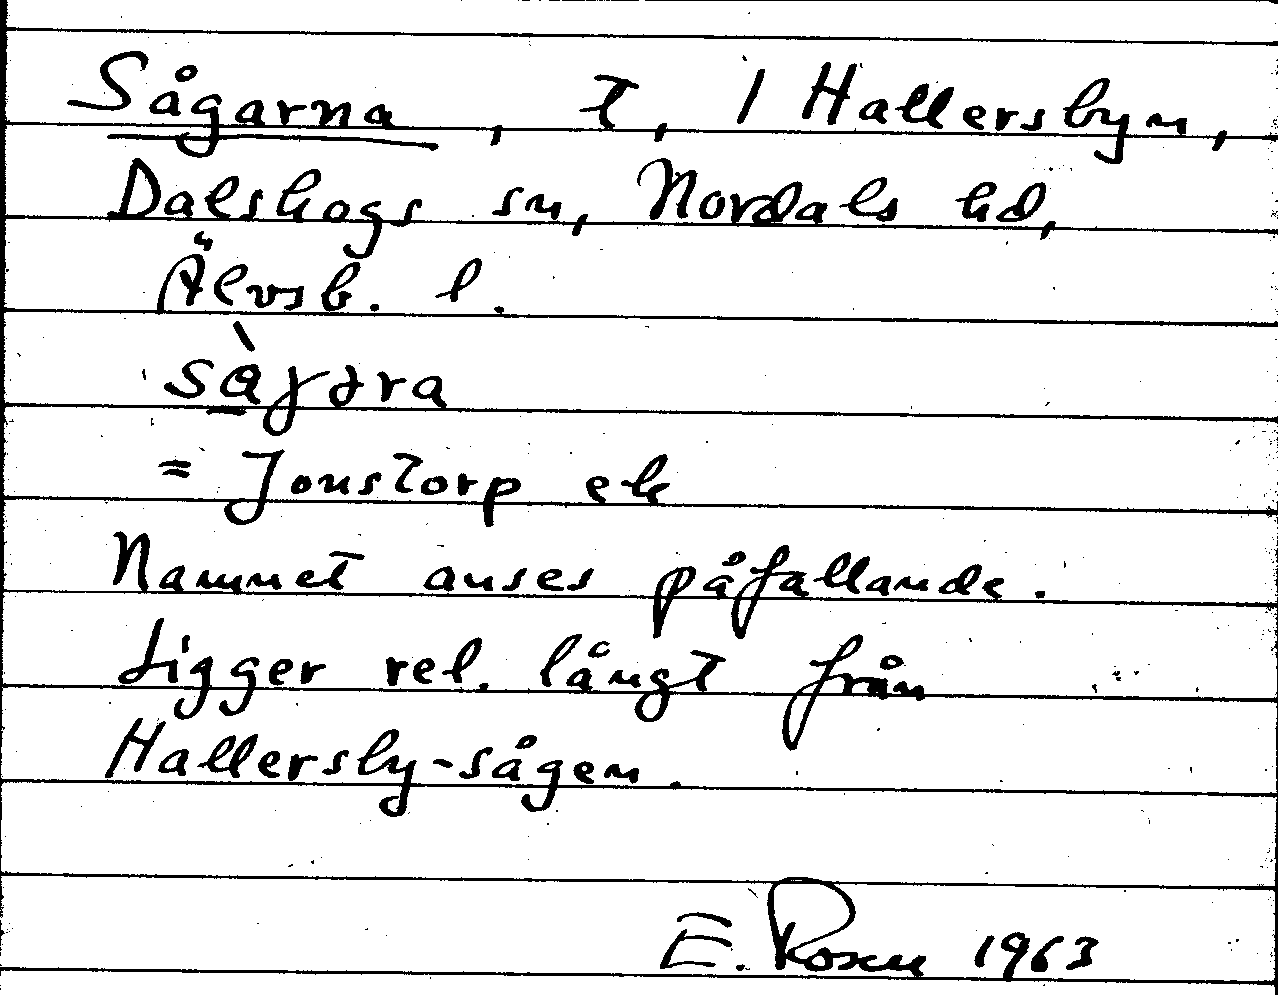 Sågarna, t, 1 Hallersbyn,
Dalskogs sn, Nordals hd,
Älvsb. l.
= Jonstorp ek
Namnet anses påfallande.
Ligger rel. långt från
Hallersby-sågen.
E. Rosen 1963